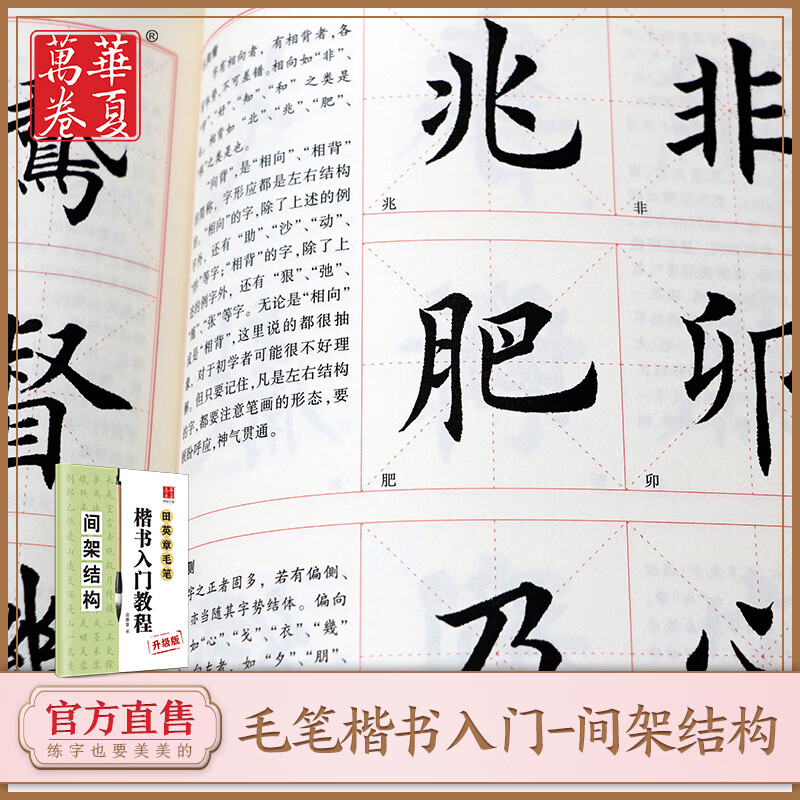 華夏
萬卷
®
字有相向者，有相背者，各
不可差错。相向如“非”、
“好”、“知”、“和”之类是
相背如“北”、“兆”、“肥”、
之类是也。
“向背”，是“相向”、“相背”
简称，字形应都是左右结构
“相向”的字，除了上述的例
字外，还有“助”、“沙”、“动”、
等字；“相背”的字，除了上
的例字外，还有“狠”、“弛”、
“张”等字。无论是“相向”
是“相背”，这里说的都很抽
对于初学者可能很不好理
但只要记住，凡是左右结构
的字，都要注意笔画的形态，要
顾盼呼应，神气贯通。
则
字之正者固多，若有偏侧、
亦当随其字势结体。偏向
如“心”、“戈”、“衣”、“幾”
向左者，如“夕”、“朋”、
兆
非
兆
非
肥
卯
肥
卯
乃
心
督
间架结构
田英章毛笔
楷书入门教程
升级版
官方直售
练字也要美美的
毛笔楷书入门-间架结构